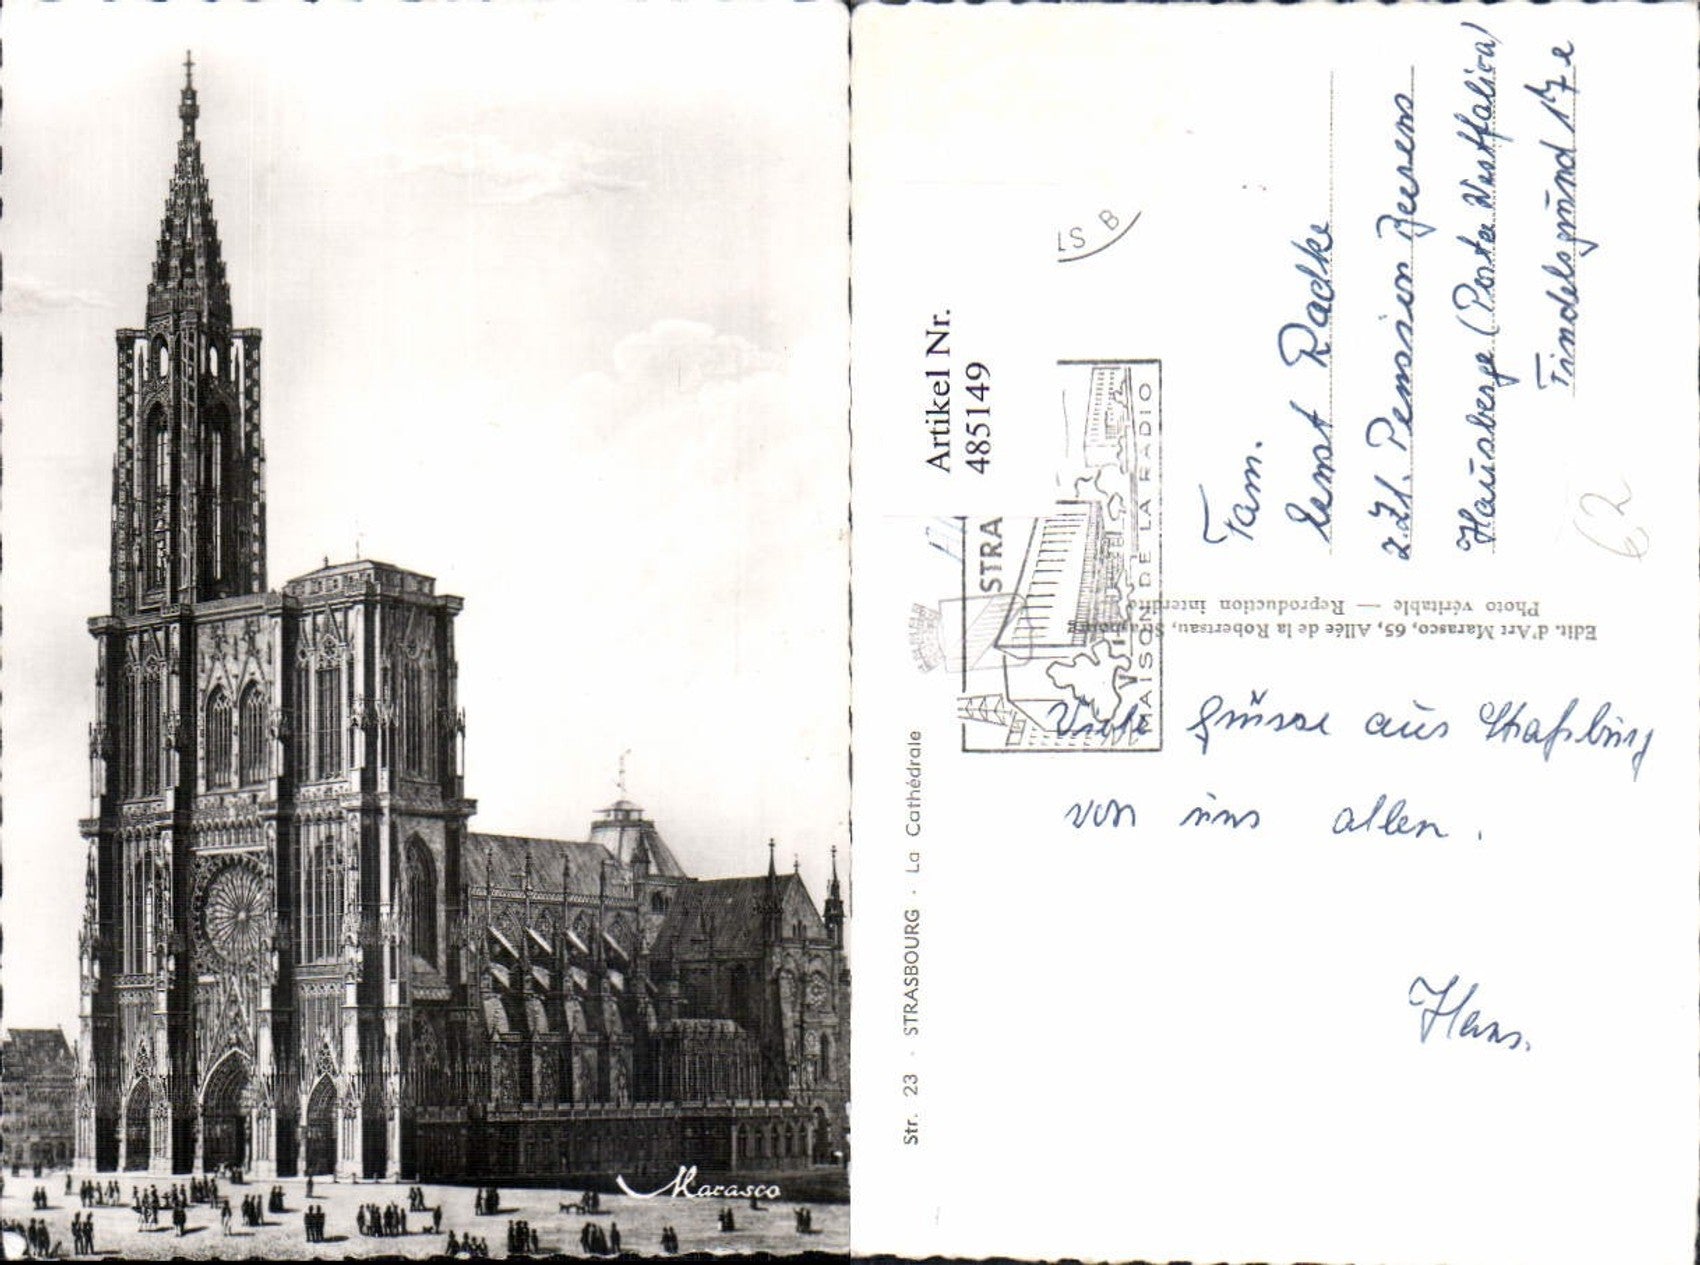 Marasco
Str. 23 · STRASBOURG · La Cathédrale
Artikel Nr.
485149
LS B
STRA
MAISON DE LA RADIO
Edit. d'Art Marasco, 65, Allée de la Robertsau, Strasbourg
Photo véritable — Reproduction interdite
Viele Grüsse aus Straßburg
von uns allen.
Hans.
Fam.
Ernst Radke
z.Zt. Pension
Hausberge (Porta Westfalica)
Findelsgrund 17e
62